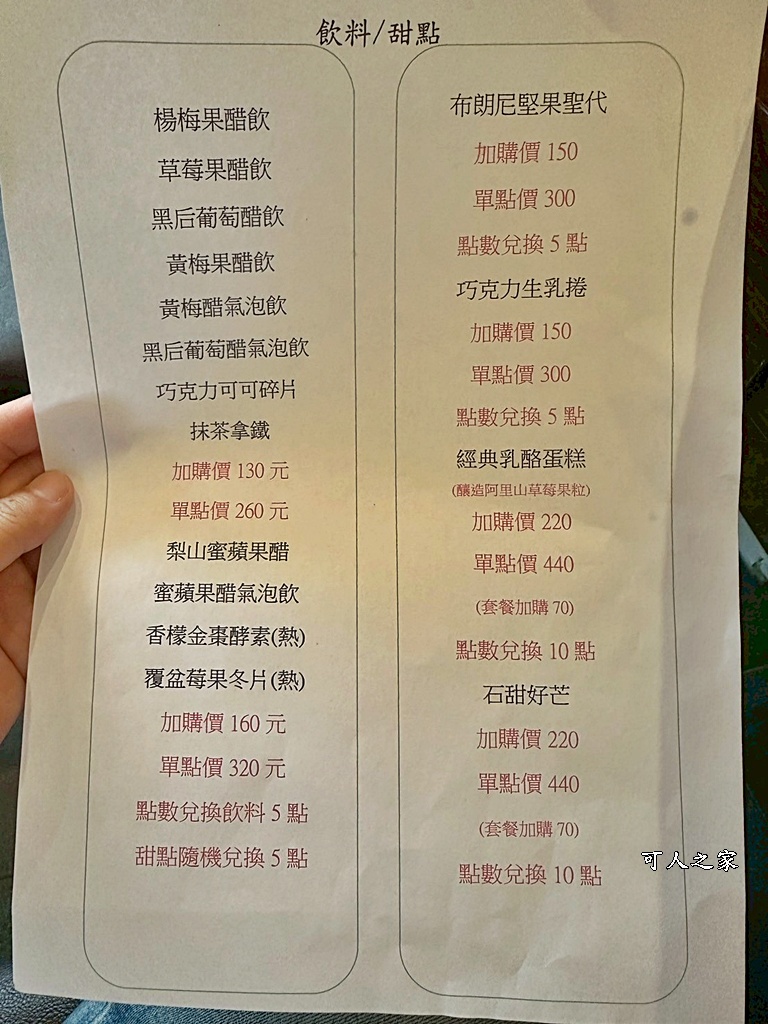 飲料/甜點
楊梅果醋飲
草莓果醋飲
黑后葡萄醋飲
黃梅果醋飲
黃梅醋氣泡飲
黑后葡萄醋氣泡飲
巧克力可可碎片
抹茶拿鐵
加購價 130 元
單點價 260 元
梨山蜜蘋果醋
蜜蘋果醋氣泡飲
香檬金棗酵素(熱)
覆盆莓果冬片(熱)
加購價 160 元
單點價 320 元
點數兌換飲料 5 點
甜點隨機兌換 5 點
布朗尼堅果聖代
加購價 150
單點價 300
點數兌換 5 點
巧克力生乳捲
加購價 150
單點價 300
點數兌換 5 點
經典乳酪蛋糕
(釀造阿里山草莓果粒)
加購價 220
單點價 440
(套餐加購 70)
點數兌換 10 點
石甜好芒
加購價 220
單點價 440
(套餐加購 70)
點數兌換 10 點
可人之家